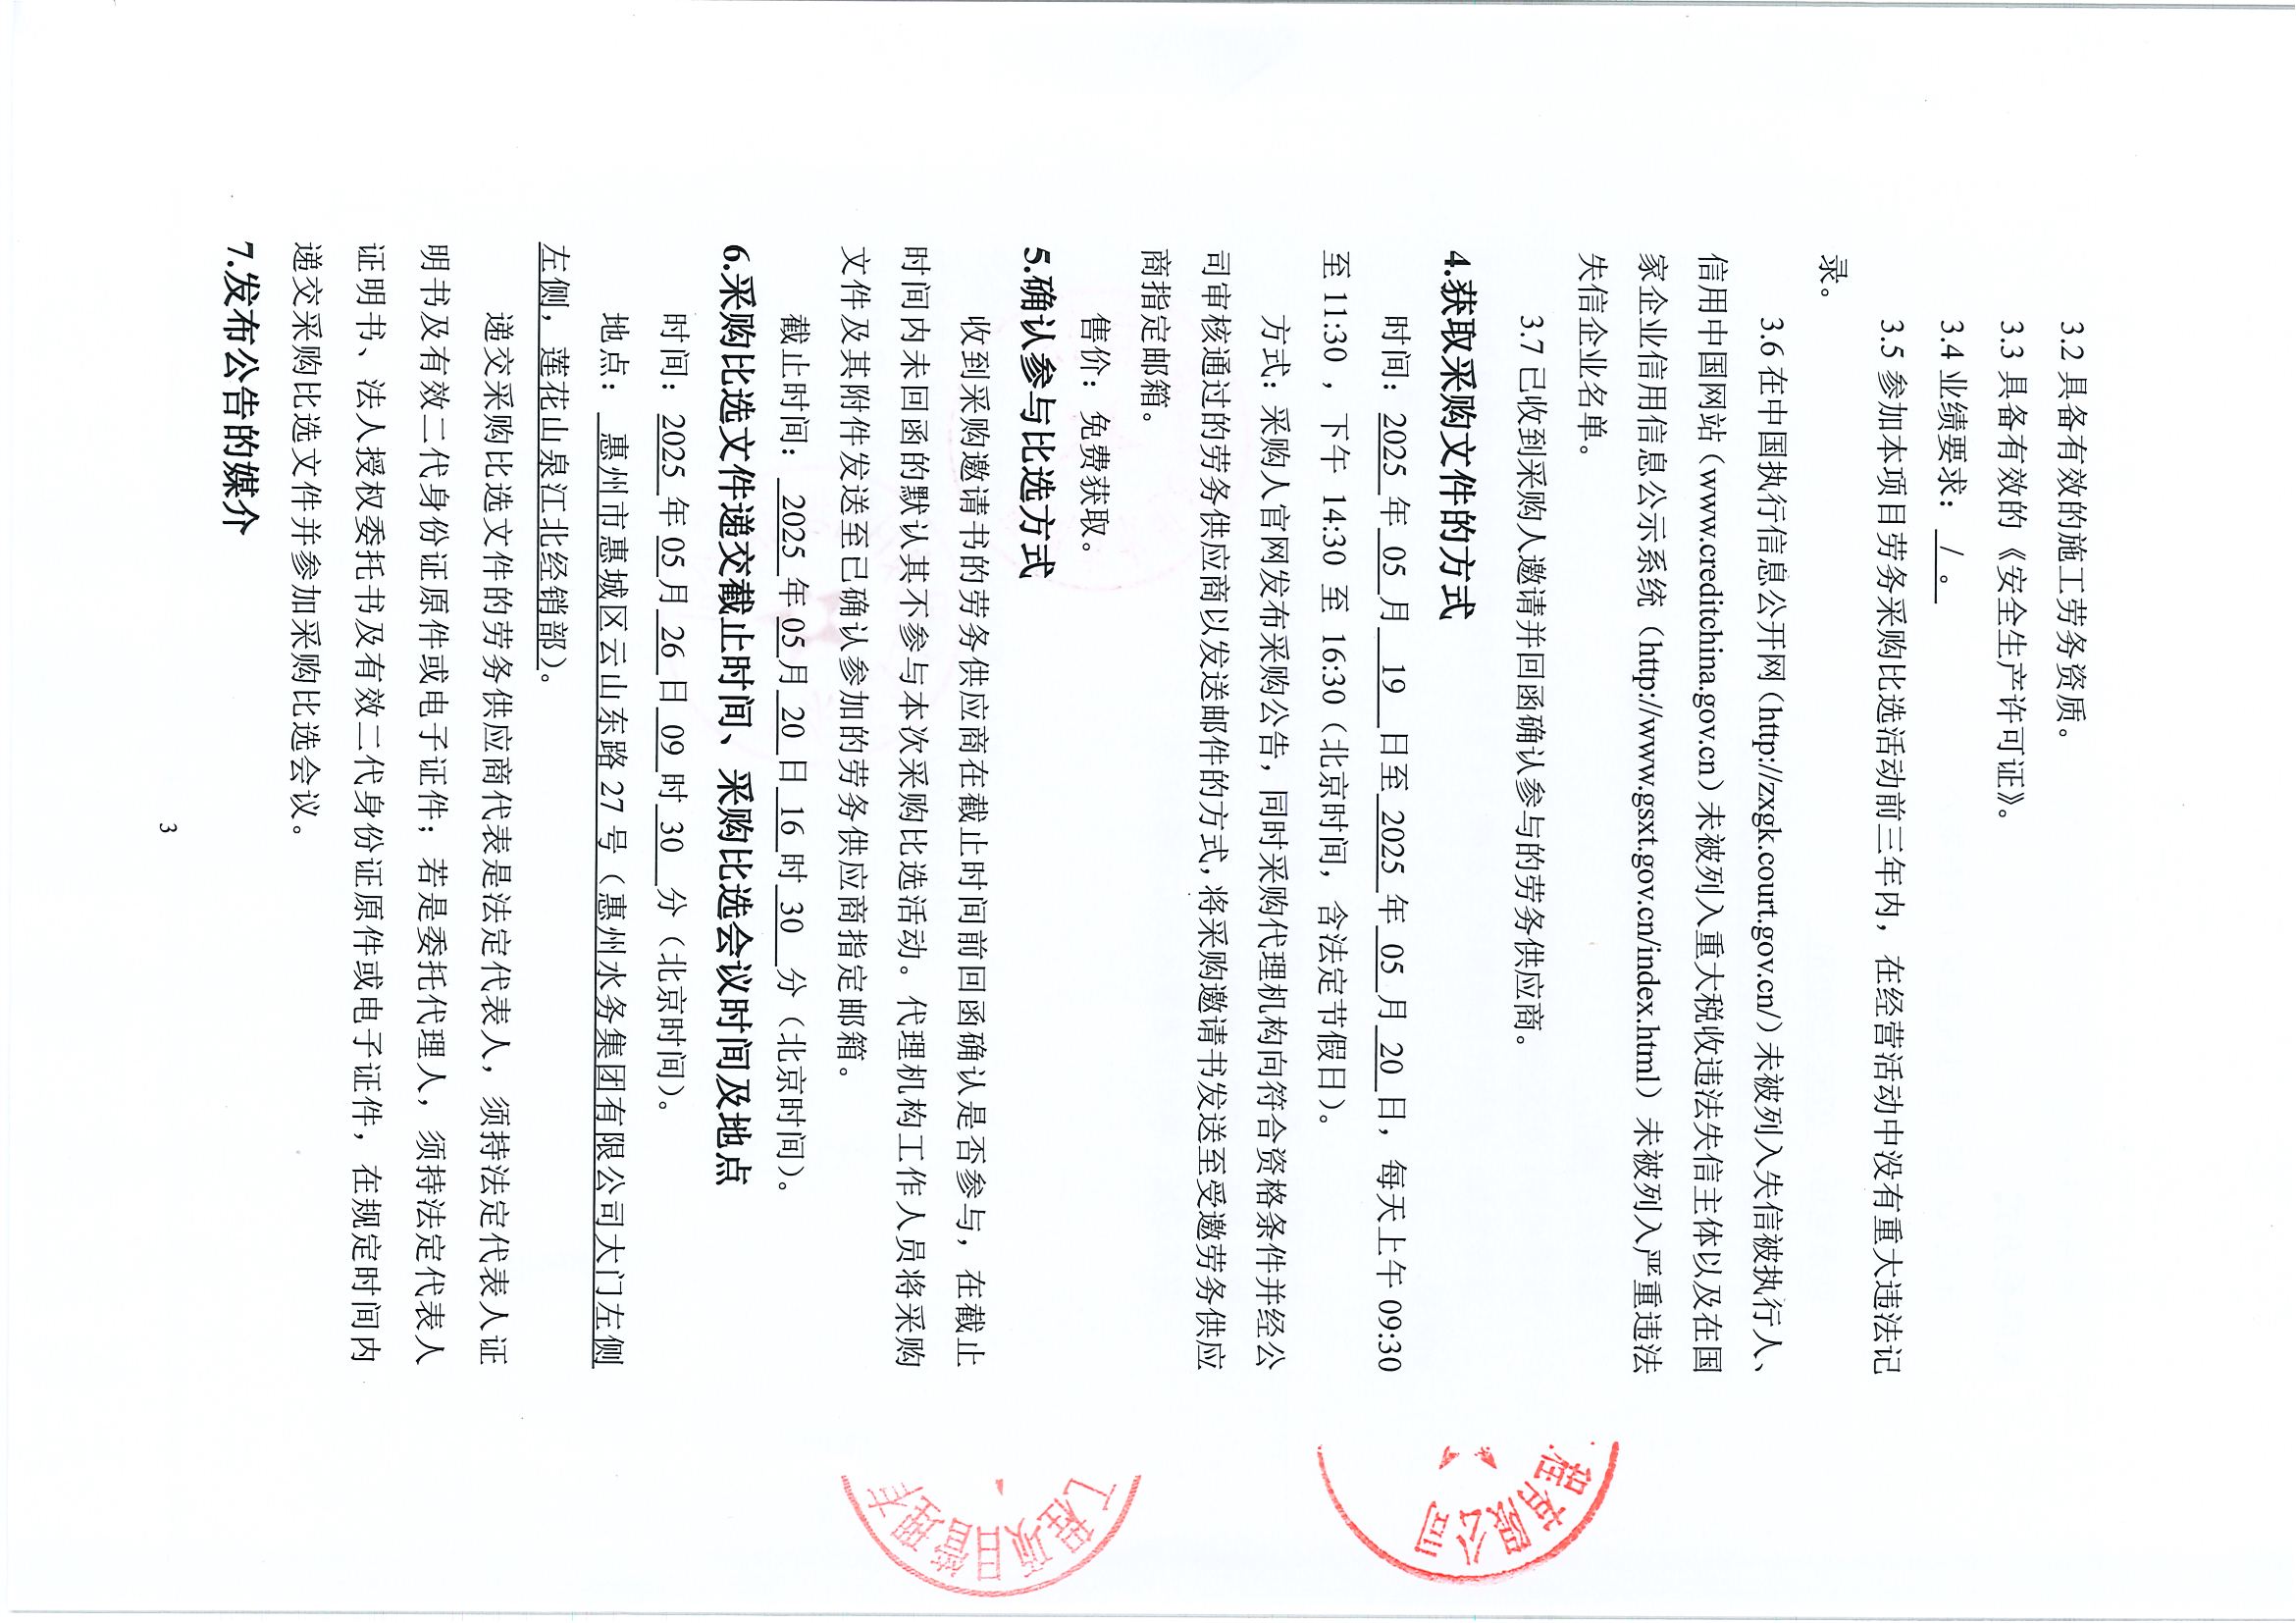 3.2 具备有效的施工劳务资质。
3.3 具备有效的《安全生产许可证》。
3.4 业绩要求: / 。
3.5 参加本项目劳务采购比选活动前三年内，在经营活动中没有重大违法记
录。
3.6 在中国执行信息公开网（http://zxgk.court.gov.cn/）未被列入失信被执行人、
信用中国网站（www.creditchina.gov.cn）未被列入重大税收违法失信主体以及在国
家企业信用信息公示系统（http://www.gsxt.gov.cn/index.html）未被列入严重违法
失信企业名单。
3.7 已收到采购人邀请并回函确认参与的劳务供应商。
4.获取采购文件的方式
时间: 2025 年 05 月 19 日至 2025 年 05 月 20 日，每天上午 09:30
至 11:30 ，下午 14:30 至 16:30（北京时间，含法定节假日）。
方式: 采购人官网发布采购公告，同时采购代理机构向符合资格条件并经公
司审核通过的劳务供应商以发送邮件的方式，将采购邀请书发送至受邀劳务供应
商指定邮箱。
售价：免费获取。
5.确认参与比选方式
收到采购邀请书的劳务供应商在截止时间前回函确认是否参与，在截止
时间内未回函的默认其不参与本次采购比选活动。代理机构工作人员将采购
文件及其附件发送至已确认参加的劳务供应商指定邮箱。
截止时间： 2025 年 05 月 20 日 16 时 30 分（北京时间）。
6.采购比选文件递交截止时间、采购比选会议时间及地点
时间: 2025 年 05 月 26 日 09 时 30 分（北京时间）。
地点： 惠州市惠城区云山东路 27 号（惠州水务集团有限公司大门左侧
左侧，莲花山泉江北经销部）。
递交采购比选文件的劳务供应商代表是法定代表人，须持法定代表人证
明书及有效二代身份证原件或电子证件；若是委托代理人，须持法定代表人
证明书、法人授权委托书及有效二代身份证原件或电子证件，在规定时间内
递交采购比选文件并参加采购比选会议。
7.发布公告的媒介
3
程有限公司
工程项目管理有